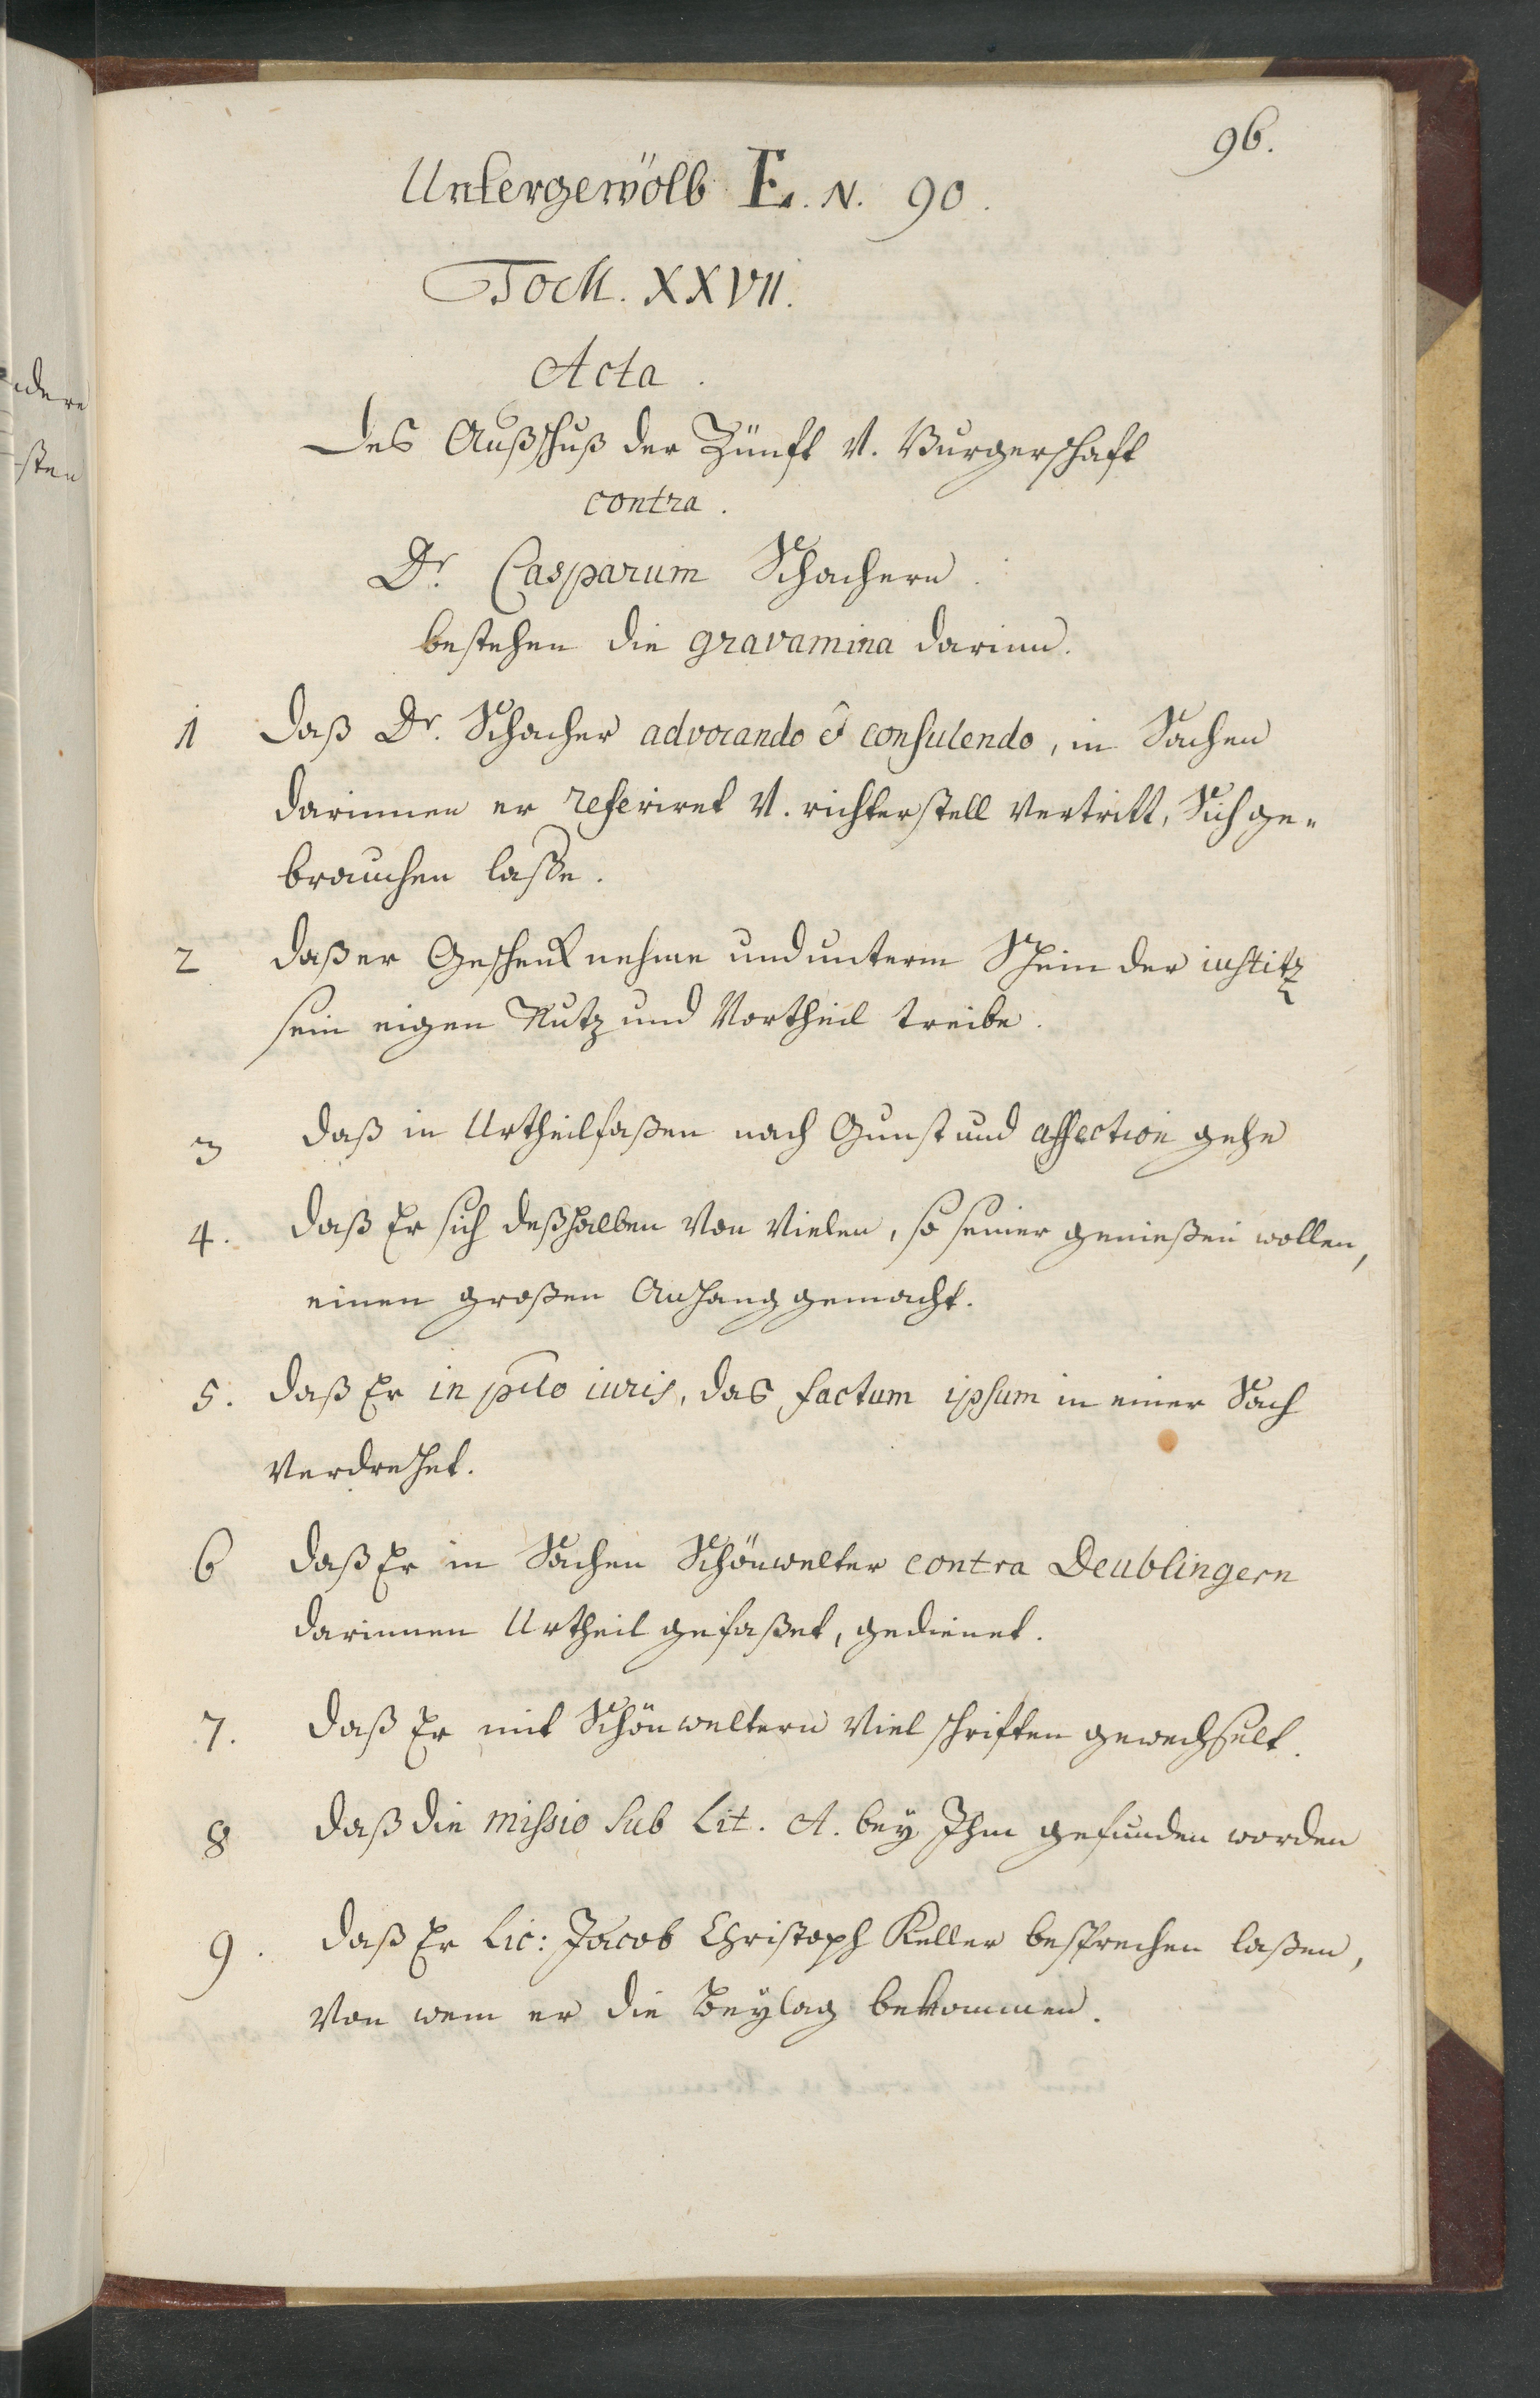 96.
Untergewölb E. N. 90.
Tom. XXVII.
Acta.
des Außschuß der Zünft V. Burgerschaft
contra.
Dr. Casparum Schachern.
bestehen die gravamina darinn.
1 daß Dr. Schacher advocando & consulendo, in Sachen
darinnen er referiret V. richterstell vertritt, Sich ge-
brauchen lasse.
2 daß er Geschenk nehme und unterm Schein der iustitz
sein eigen Nutz und Vortheil treibe.
3 daß in Urtheilfaßen nach Gunst und affection gehe
4. daß Er sich deßhalben von vielen, so seiner genießen wollen,
einen großen Anhang gemacht.
5. daß Er in pcto iuris, das factum ipsum in einer Sach
verdrehet.
6 daß Er in Sachen Schönwelter contra Deublingern
darinnen Urtheil gefaßet, gedienet.
7. daß Er mit Schönweltern viel schriften gewechselt.
8 daß die missio sub Lit. A. bey Ihm gefunden worden
9. daß Er Lic: Jacob Christoph Keller besprechen laßen,
von wem er die Beylag bekommen.